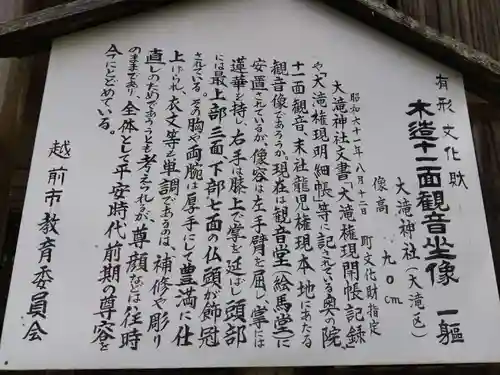 有形文化財
木造十一面観音坐像 一軀
大滝神社(大滝区)
像高 九〇cm
昭和六十一年八月十二日 町文化財指定
大滝神社文書「大滝権現開帳記録」
や「大滝権現明細帳」等に記されている奥の院、
十一面観音、末社龍児権現本地にあたる
観音像であろうか。現在は観音堂(絵馬堂)に
安置されているが、像容は左手臂を屈し、掌には
蓮華を持ち、右手は膝上で掌を延ばし、頭部
には最上部三面、下部七面の仏頭が飾冠
されている。その胸や両腕は厚手にして豊満に仕
上げられ、衣文等が単調であるのは、補修や彫り
直しのためであろうとも考えられるが、尊顔などは往時
のままであり、全体として平安時代前期の尊容を
今にとどめている。
越前市教育委員会